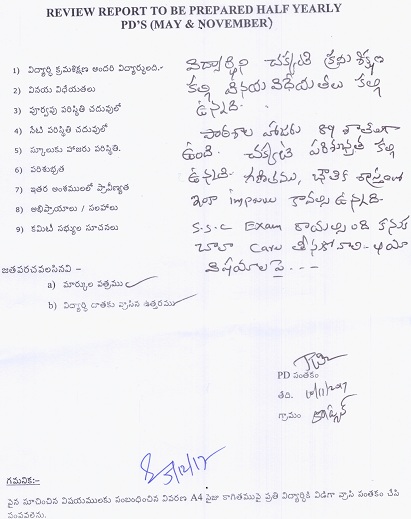 REVIEW REPORT TO BE PREPARED HALF YEARLY
PD'S (MAY & NOVEMBER)
1) విద్యార్థి క్రమశిక్షణ అందరి విద్యార్థులది.-
2) వినయ విధేయతలు
3) పూర్వపు పరిస్థితి చదువులో
4) నేటి పరిస్థితి చదువులో
5) స్కూలుకు హాజరు పరిస్థితి.
6) పరిశుభ్రత
7) ఇతర అంశములలో ప్రావీణ్యత
8) అభిప్రాయాలు / సలహాలు
9) కమిటీ సభ్యుల సూచనలు
విద్యార్థిని చక్కటి క్రమ శిక్షణ
కల్గి వినయ విధేయతలు కల్గి
ఉన్నది.
పాఠశాల హాజరు 89 శాతంగా
ఉంది. చక్కటి పరిశుభ్రత కల్గి
ఉన్నది. గణితము, భౌతిక
ఇంకా improve కావల్సి ఉన్నది.
S.S.C Exam రాయాల్సి ఉంది కనుక
చాలా Care తీసుకోవాలి - ఆయా
విషయాలపై . - - -
జతపరచవలసినవి -
a) మార్కుల పత్రము
b) విద్యార్థి దాతకు వ్రాసిన ఉత్తరము
PD సంతకం
తేది. 10/11/2017
గ్రామం
5/12/17
గమనిక:-
పైన సూచించిన విషయములకు సంబంధించిన వివరణ A4 సైజు కాగితముపై ప్రతి విద్యార్థికి విడిగా వ్రాసి సంతకం చేసి
పంపవలెను.